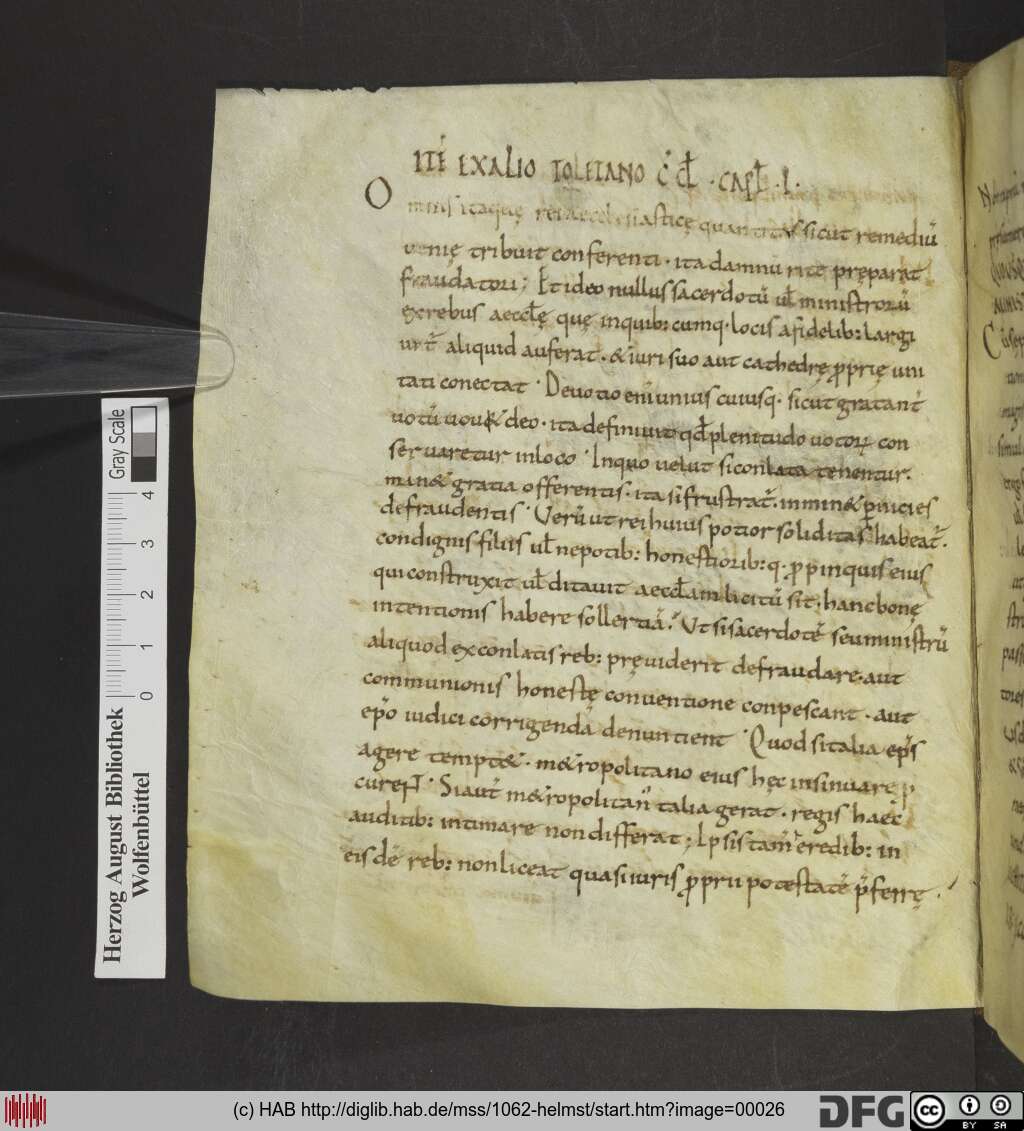 ITE͂ EX ALIO TOLETANO C̊ CĪL · CAPĪL · I ·
Omnis itaquę rei aeccłesiasticę quantitas sicut remediū
uenię tribuit conferenti · ita damnū rite pręparat
fraudatori ; Et ideo nullus sacerdotū uł ministrorū
ex rebus aecclę quę in quib: cumq· locis a fidelib: largi
unt̄ aliquid auferat · & iuri suo aut cathedrę p̱prię uni
tati conectat · Deuotio eni͂ unius cuiusq· sicut gratant̄
uotū uou& deo · ita definiuit qđ plenitudo uotoꝝ con
seruaretur in loco · In quo uelut si conlata tenentur ·
min& gratia offerentis · ita si frustrat̄ · inmin& p̱nicies
defraudentis · Verū ut rei huius potior soliditas habeat̄ ·
condignis filiis uł nepotib: honestiorib: q· p̱pinquis eius
qui construxit uł ditauit aeccłam licitū sit · hanc bonę
intentionis habere sollertiā · Ut si sacerdotē seu ministrū
aliquod ex conlatis reb: pręuiderit defraudare · aut
communionis honestę conuentione conpescant · aut
ep̄o iudici corrigendā denuntient · Quod si talia ep̄s
agere tempt& · m&ropolitano eius hęc insinuare p
curer̄t · Si aut̄ m&ropolitan͂ talia gerat · regis haec
auditib: intimare non differat ; Ipsis tam̄ heredib: in
eisdē reb: non liceat quasi iuris p̱prii potestatē p̄ferrę ·
Herzog August Bibliothek
Wolfenbüttel
Gray Scale
0 1 2 3 4
(c) HAB http://diglib.hab.de/mss/1062-helmst/start.htm?image=00026
DFG
cc
BY SA